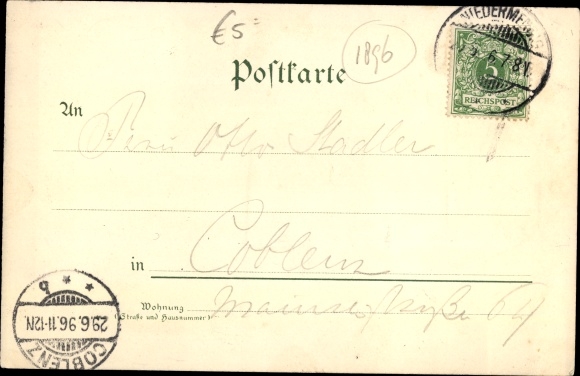 €5=
1896
NIEDERMENDIG
Postkarte
5
REICHSPOST
An
Herrn Otto Stadler
in Coblenz
Wohnung Mainzerstraße 64
(Straße und Hausnummer)
29.6.96.11-12N
COBLENZ